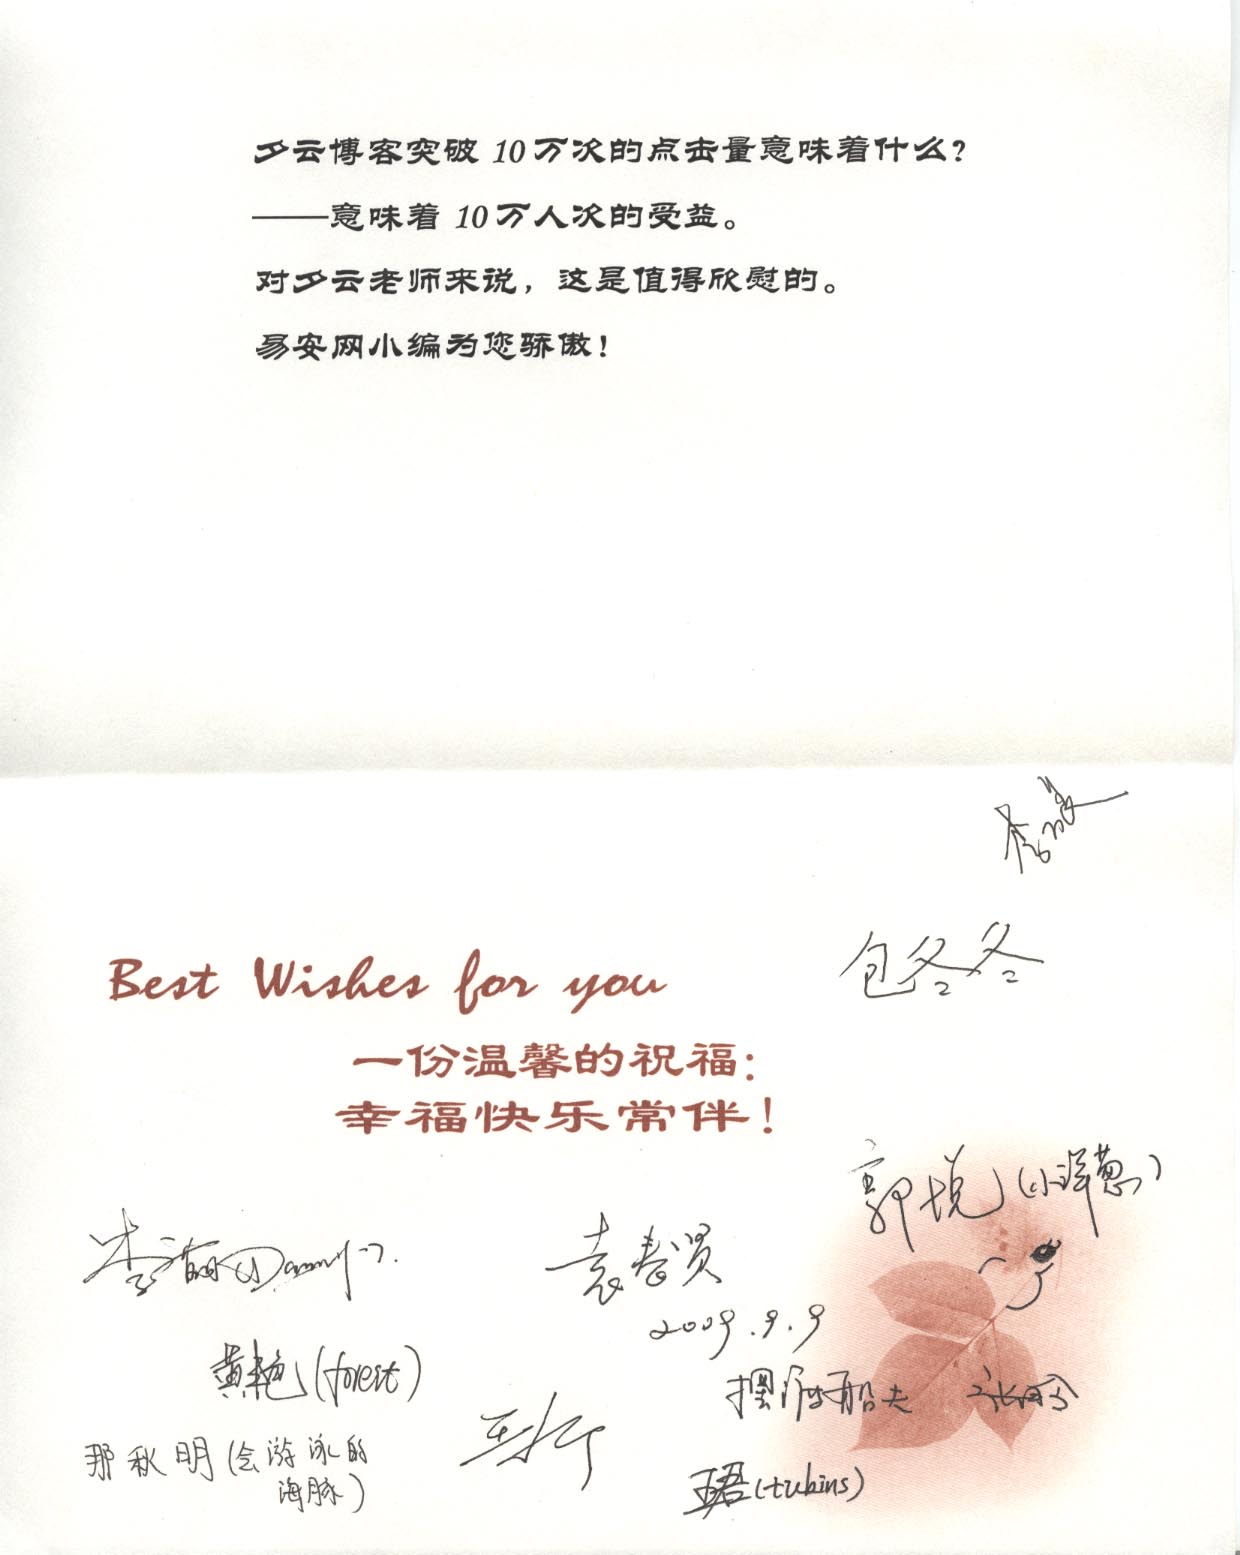 夕云博客突破 10 万次的点击量意味着什么?
——意味着 10 万人次的受益。
对夕云老师来说，这是值得欣慰的。
易安网小编为您骄傲!
包冬冬
Best Wishes for you
一份温馨的祝福:
幸福快乐常伴!
郭悦(小洋葱)
袁春贤
2009.9.9
黄艳(forest)
摆渡船夫
那秋明(会游泳的
海豚)
(tubins)